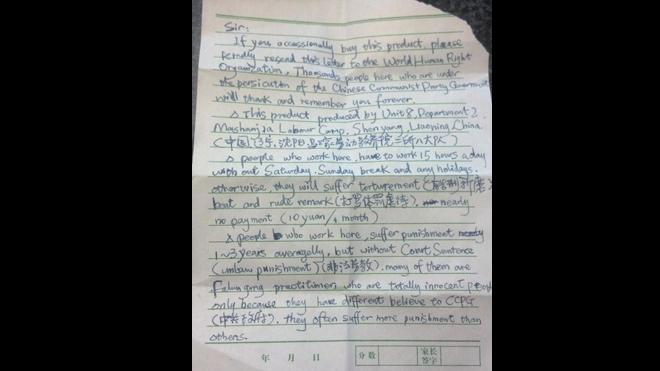 Sir:
If you occassionally buy this product, please
kindly resend this letter to the World Human Right
Organization. Thousands people here who are under
the persicution of the Chinese Communist Party Government
will thank and remember you forever.
△ This product produced by Unit 8, Department 2,
Mashanjia Labour Camp, Shenyang, Liaoning, China
(中国,辽宁,沈阳,马三家劳动教养院二所八大队)
△ people who work here, have to work 15 hours a day
with out Saturday, Sunday break and any holidays,
otherwise, they will suffer torturement (
beat and rude remark (打骂体罚虐待), nearly
no payment (10 yuan/1 month)
△ people who work here, suffer punishment
1~3 years averagelly, but without Court Sentence
(unlaw punishment) (非法劳教). many of them are
Falun gong practitioner, who are totally innocent people
only because they have different believe to CCPG
(中共政府), they often suffer more punishment than
others.
年 月 日
分数 家长
签字